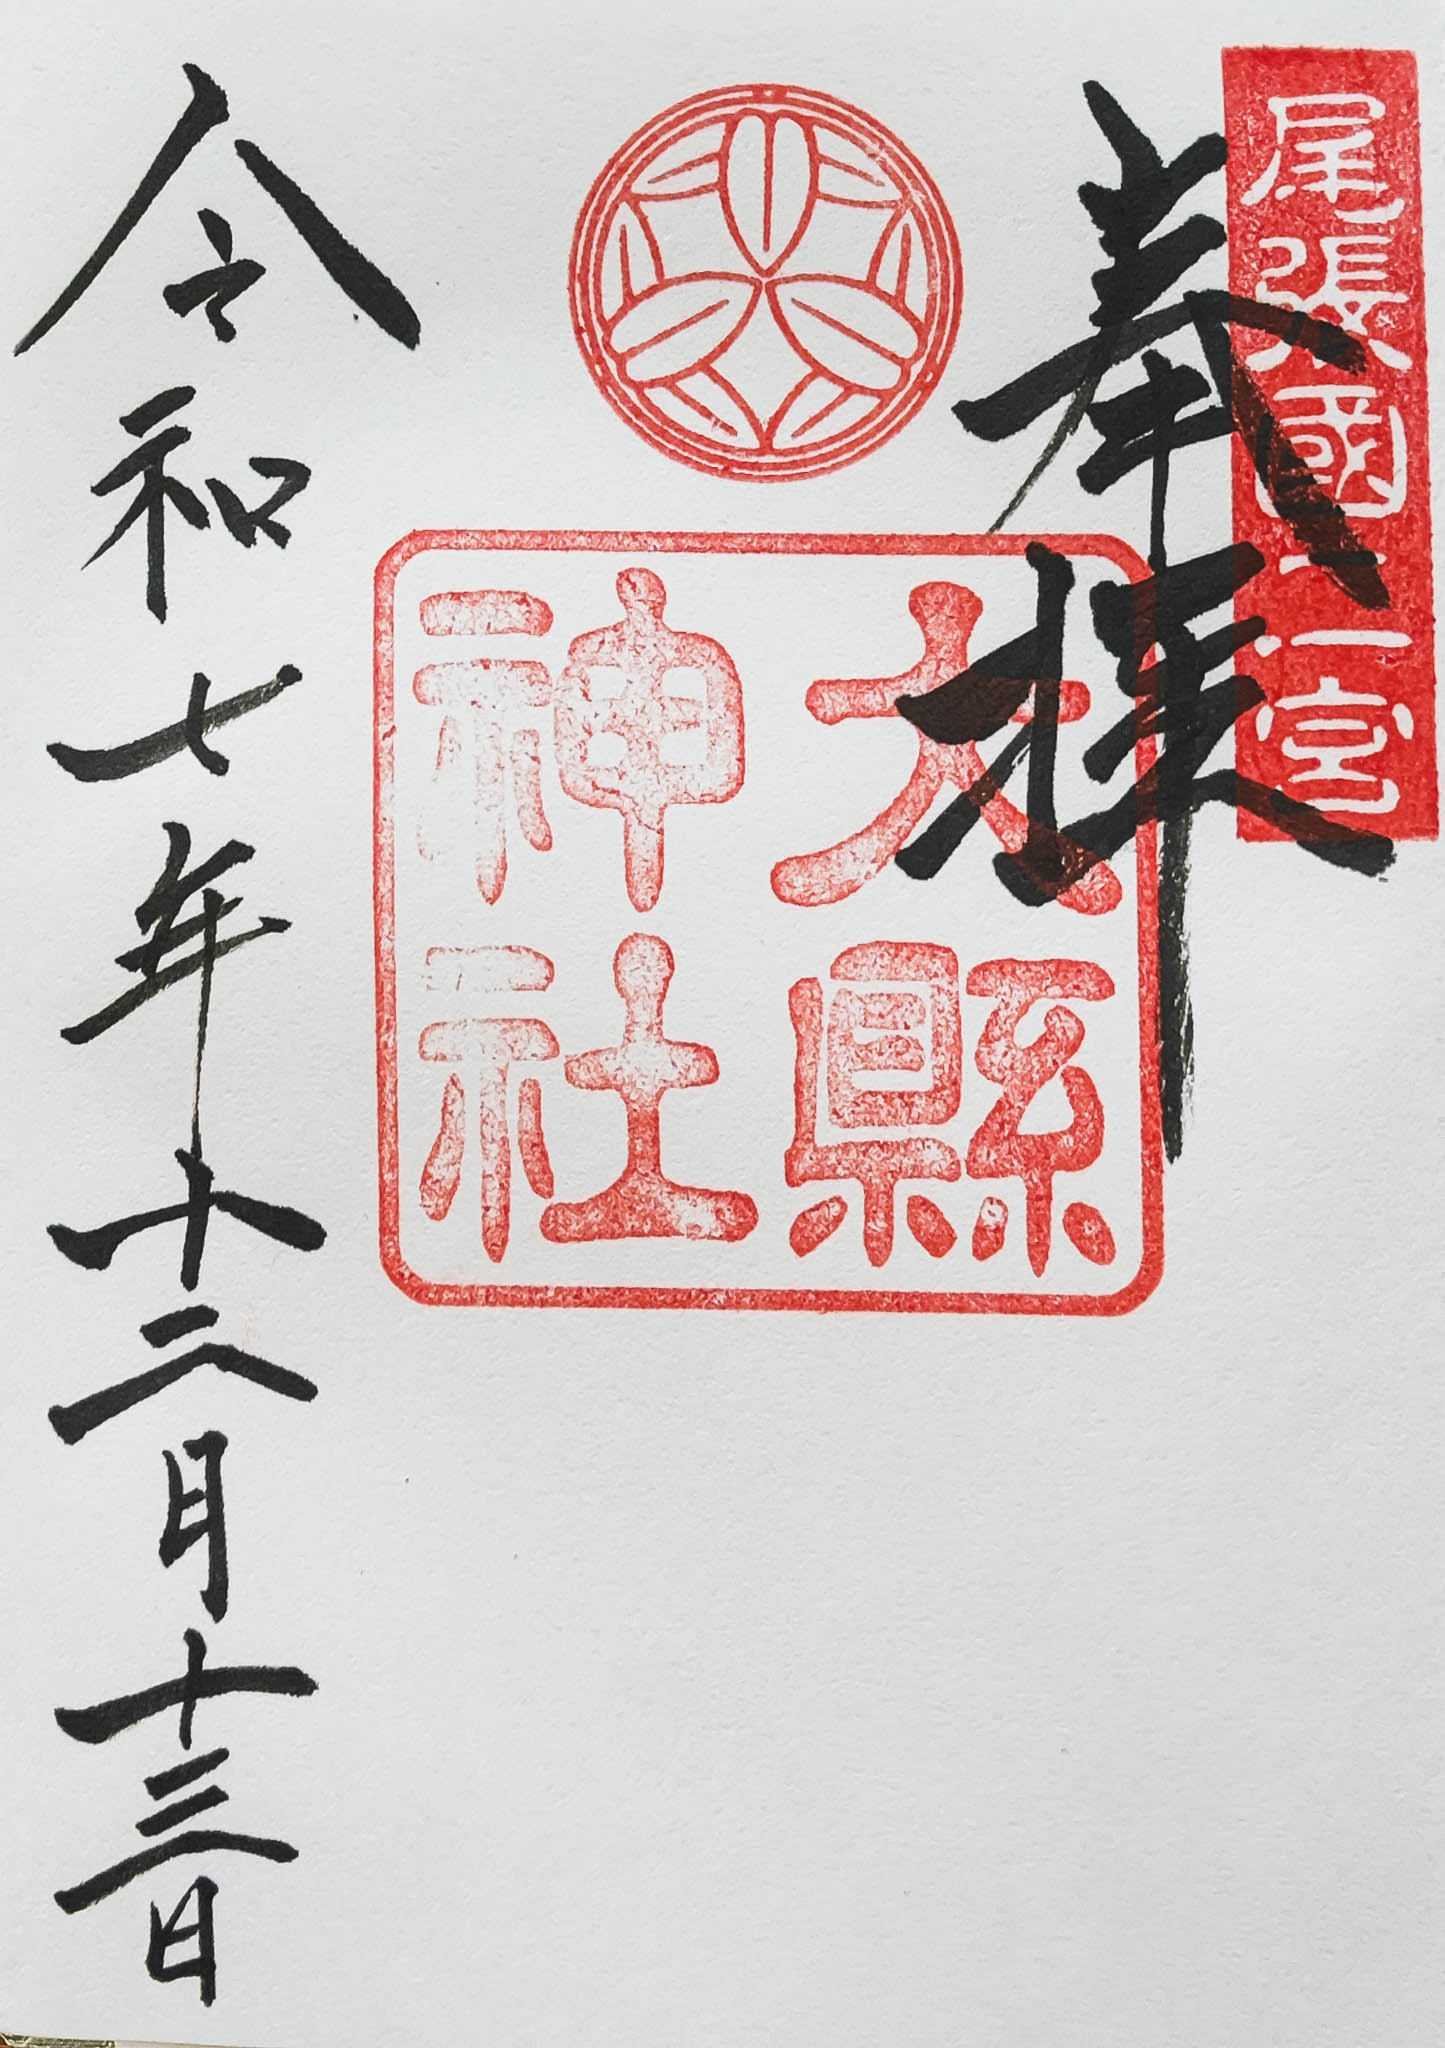 尾張國二宮
奉拝
大縣
神社
令和七年十二月十三日